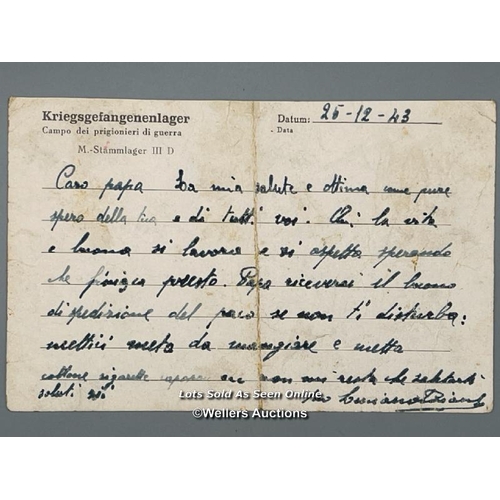 Kriegsgefangenenlager
Campo dei prigionieri di guerra
M.-Stammlager III D
Datum: 25-12-43
Data
Caro papa La mia salute e ottima come pure
spero della tua e di tutti voi. Qui la vita
e buona si lavora e si aspetta sperando
che finisca presto. Papa riceverai il buono
di spedizione del paco se non ti disturba:
mettici meta da mangiare e metta
cottone sigarette sapone non mi resta che salutarti
saluti
Lots Sold As Seen Online
©Wellers Auctions